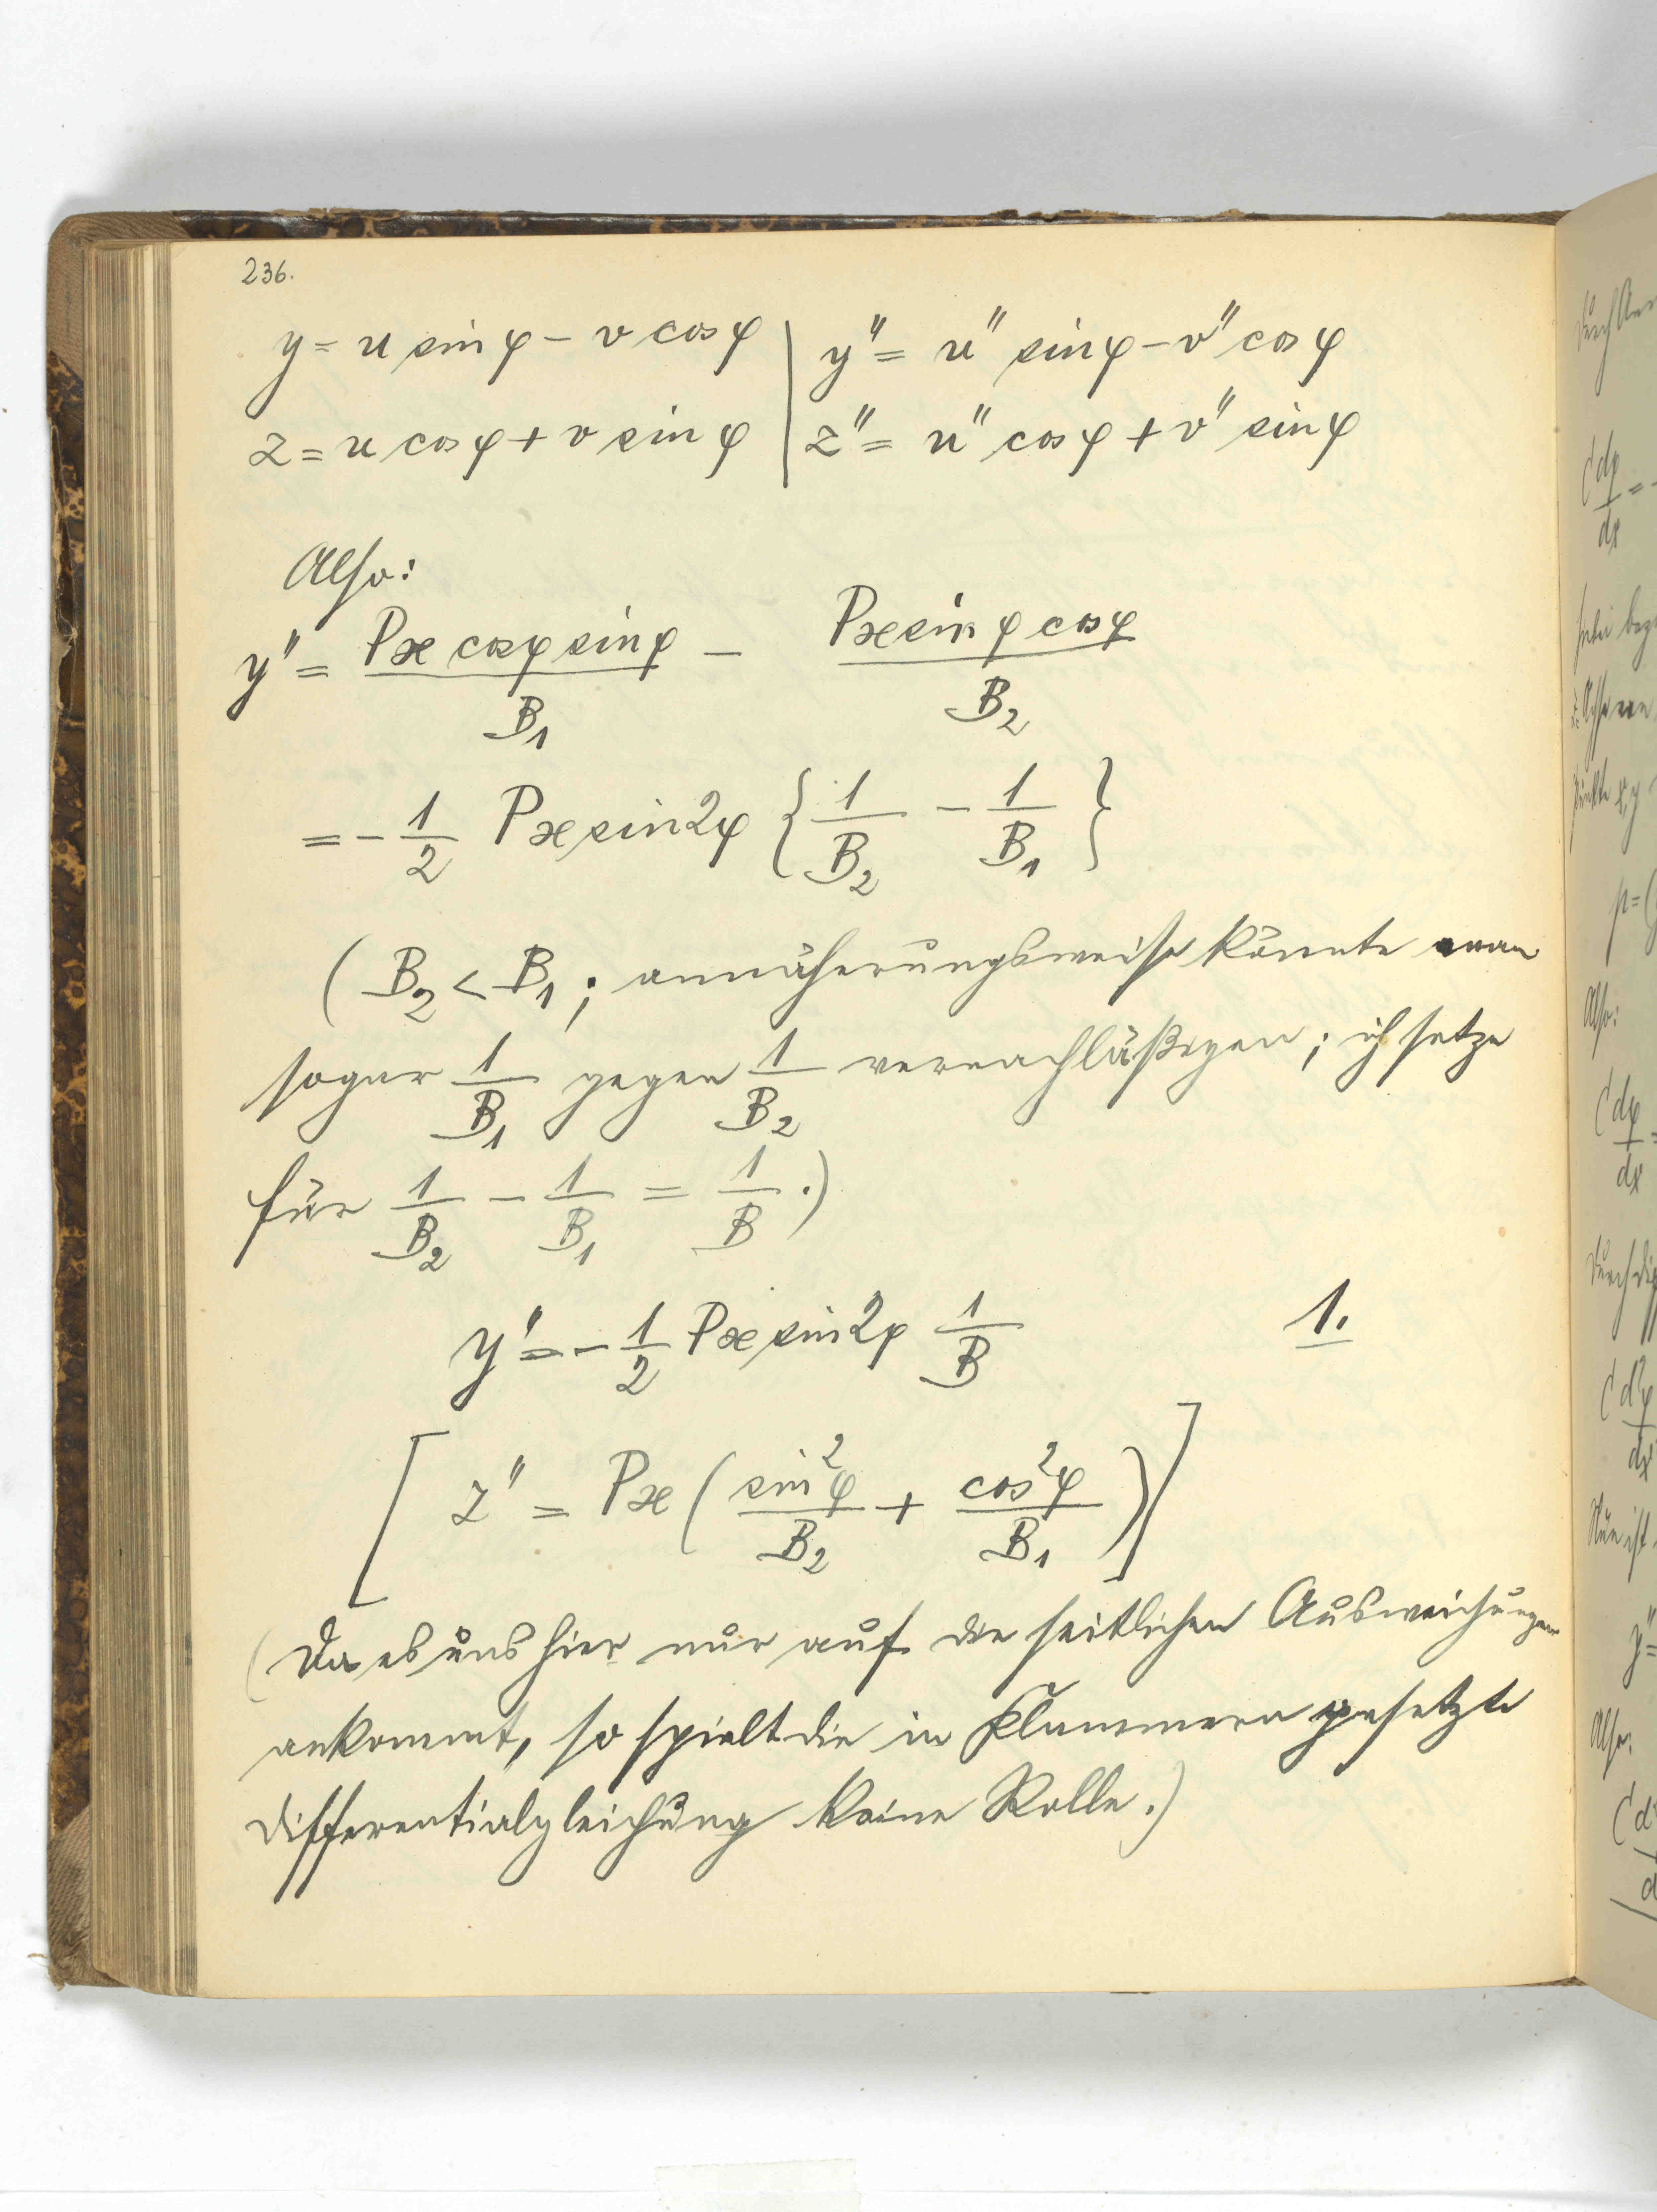 236.
y = u sin φ − v cos φ | y'' = u'' sin φ − v'' cos φ
z = u cos φ + v sin φ | z'' = u'' cos φ + v'' sin φ
Also:
y'' = Px cos φ sin φ / B₁ − Px sin φ cos φ / B₂
= − 1/2 Px sin 2φ { 1/B₂ − 1/B₁ }
( B₂ < B₁ ; annäherungsweise könnte man
sogar 1/B₁ gegen 1/B₂ vernachläßigen; ich setze
für 1/B₂ − 1/B₁ = 1/B .)
y'' = − 1/2 Px sin 2φ 1/B 1.
[ z'' = Px ( sin²φ / B₂ + cos²φ / B₁ ) ]
(Da es uns hier nur auf die seitlichen Ausweichungen
ankommt, so spielt die in Klammern gesetzte
Differentialgleichung keine Rolle.)